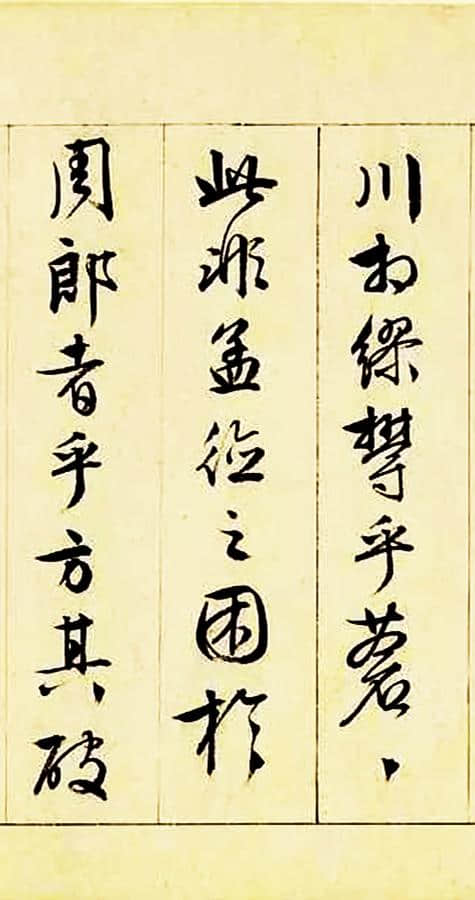 川相繆欝乎蒼々
此非孟德之困於
周郎者乎方其破